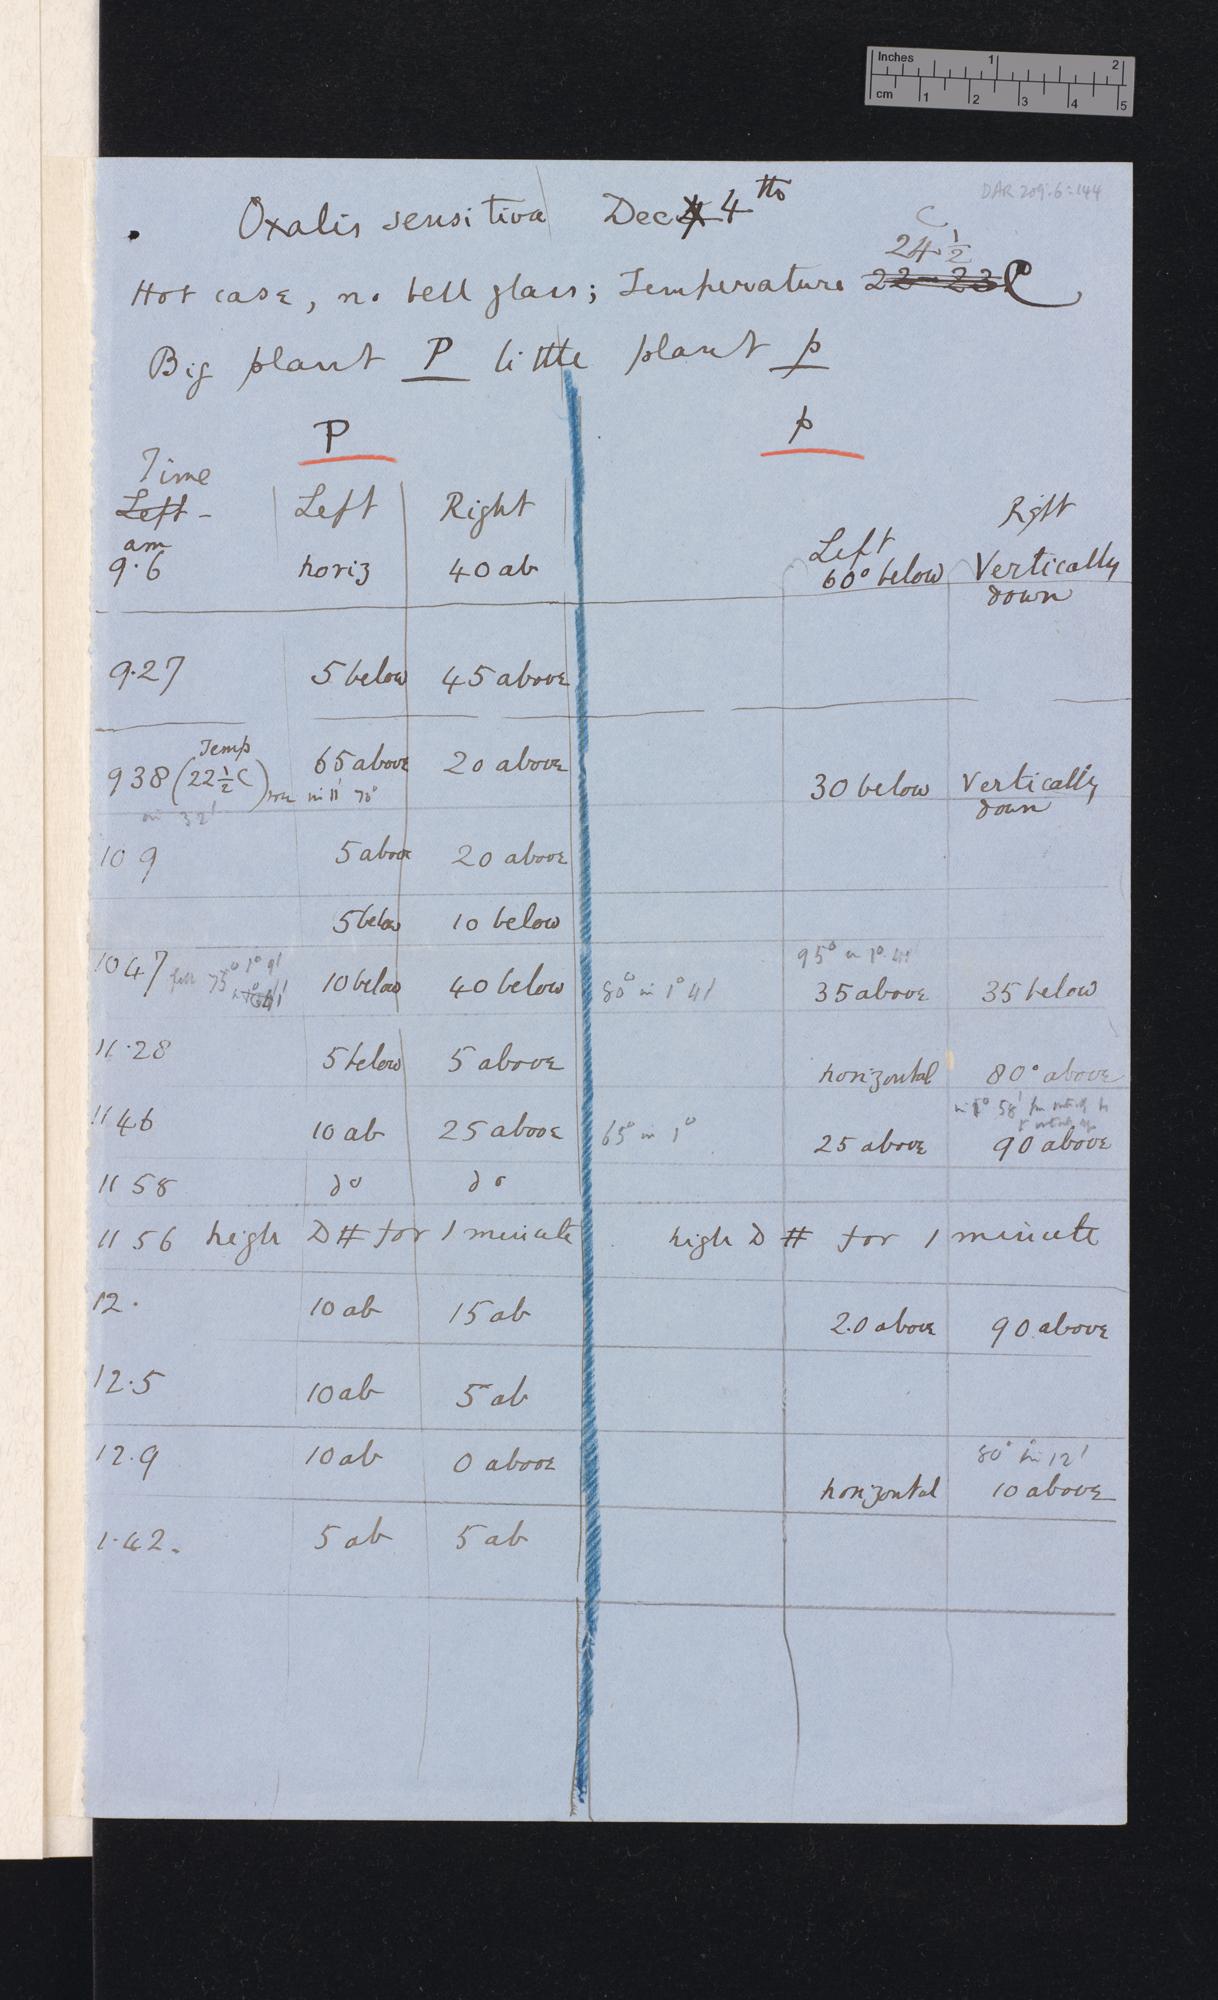 Inches 1 2
cm 1 2 3 4 5
DAR 209.6:144
Oxalis sensitiva Dec 4th
C
24 ½
Hot case, no bell glass; Temperature 22-23 C
Big plant P little plant p
P p
Time
Left - Left Right Left Right
am
9.6 horiz 40 ab 60° below Vertically down
9.27 5 below 45 above
9 38 (Temp 22½ C) 65 above 20 above 30 below Vertically down
rose in 11' 70°
in 32'
10 9 5 above 20 above
5 below 10 below
95° in 1° 41'
10 47 10 below 40 below 80° in 1° 41' 35 above 35 below
75° 1° 9'
11.28 5 below 5 above horizontal 80° above
58'
11 46 10 ab 25 above 65° in 1° 25 above 90 above
11 58 do do
11 56 high D # for 1 minute high D # for 1 minute
12. 10 ab 15 ab 20 above 90 above
12.5 10 ab 5 ab
80° in 12'
12.9 10 ab 0 above horizontal 10 above
1.42. 5 ab 5 ab